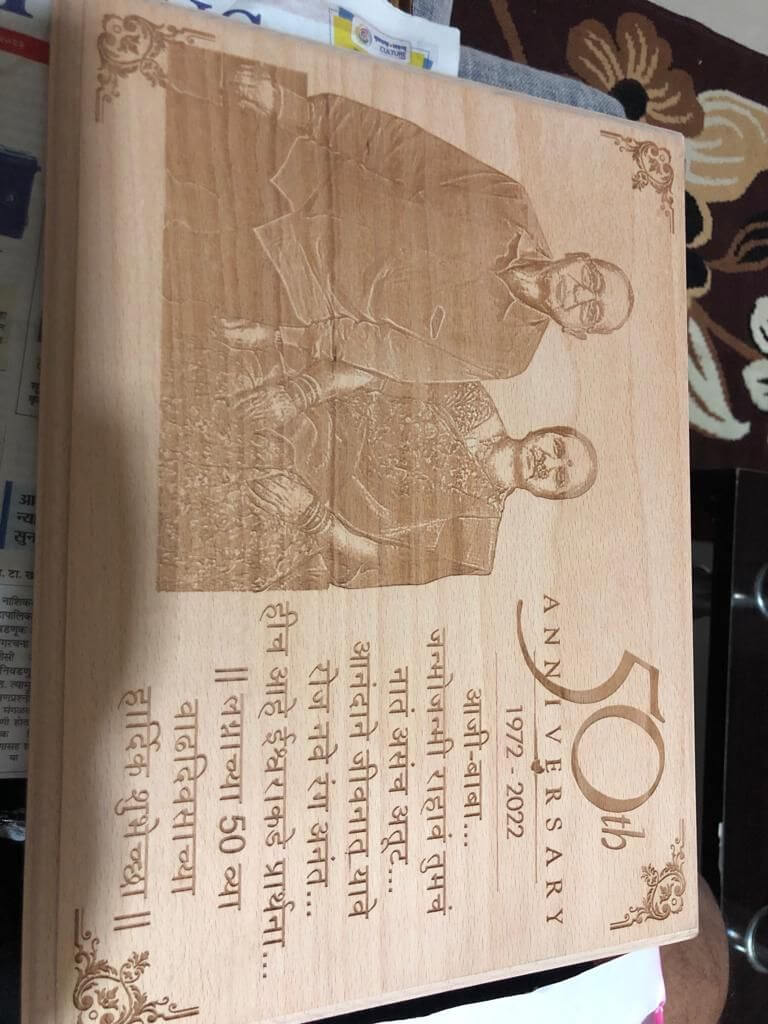 50th
ANNIVERSARY
1972 - 2022
आजी-बाबा...
जन्मोजन्मी राहावं तुमचं
नातं असंच अतूट...
आनंदाने जीवनात यावे
रोज नवे रंग अनंत....
हीच आहे ईश्वराकडे प्रार्थना...
|| लग्नाच्या 50 व्या
वाढदिवसाच्या
हार्दिक शुभेच्छा ||
CULTURE